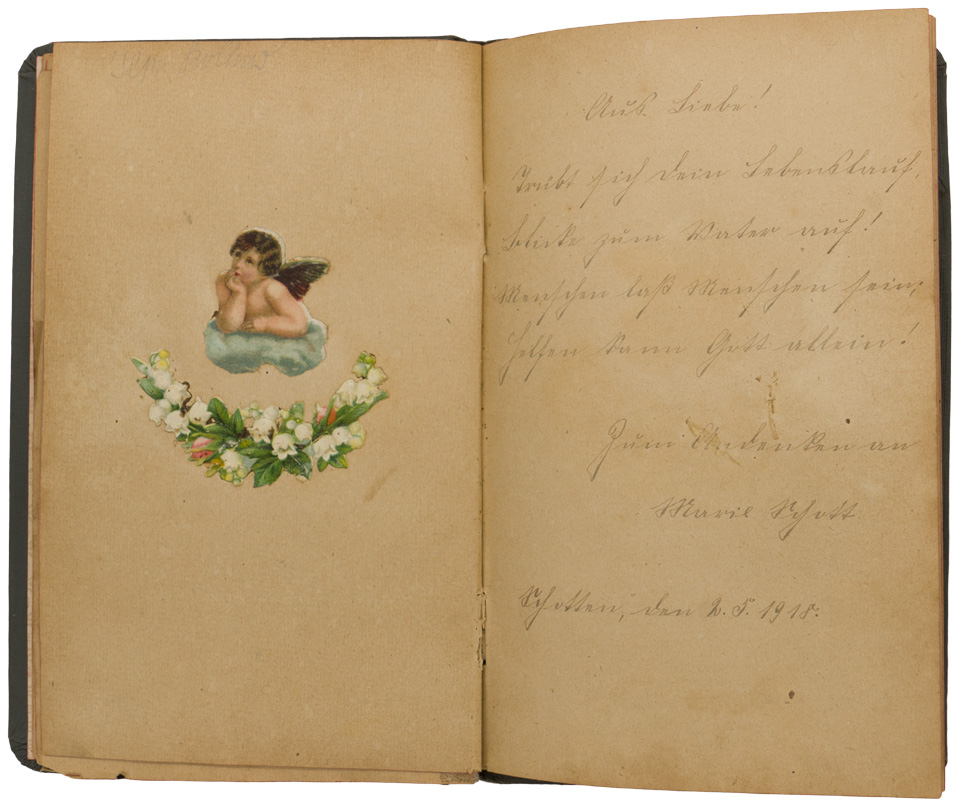 Aus Liebe!
Trübt sich dein Lebenslauf,
blicke zum Vater auf!
Menschen laß Menschen sein,
helfen kann Gott allein!
Zum Andenken an
Marie Schott
Schotten, den 2.5.1918.